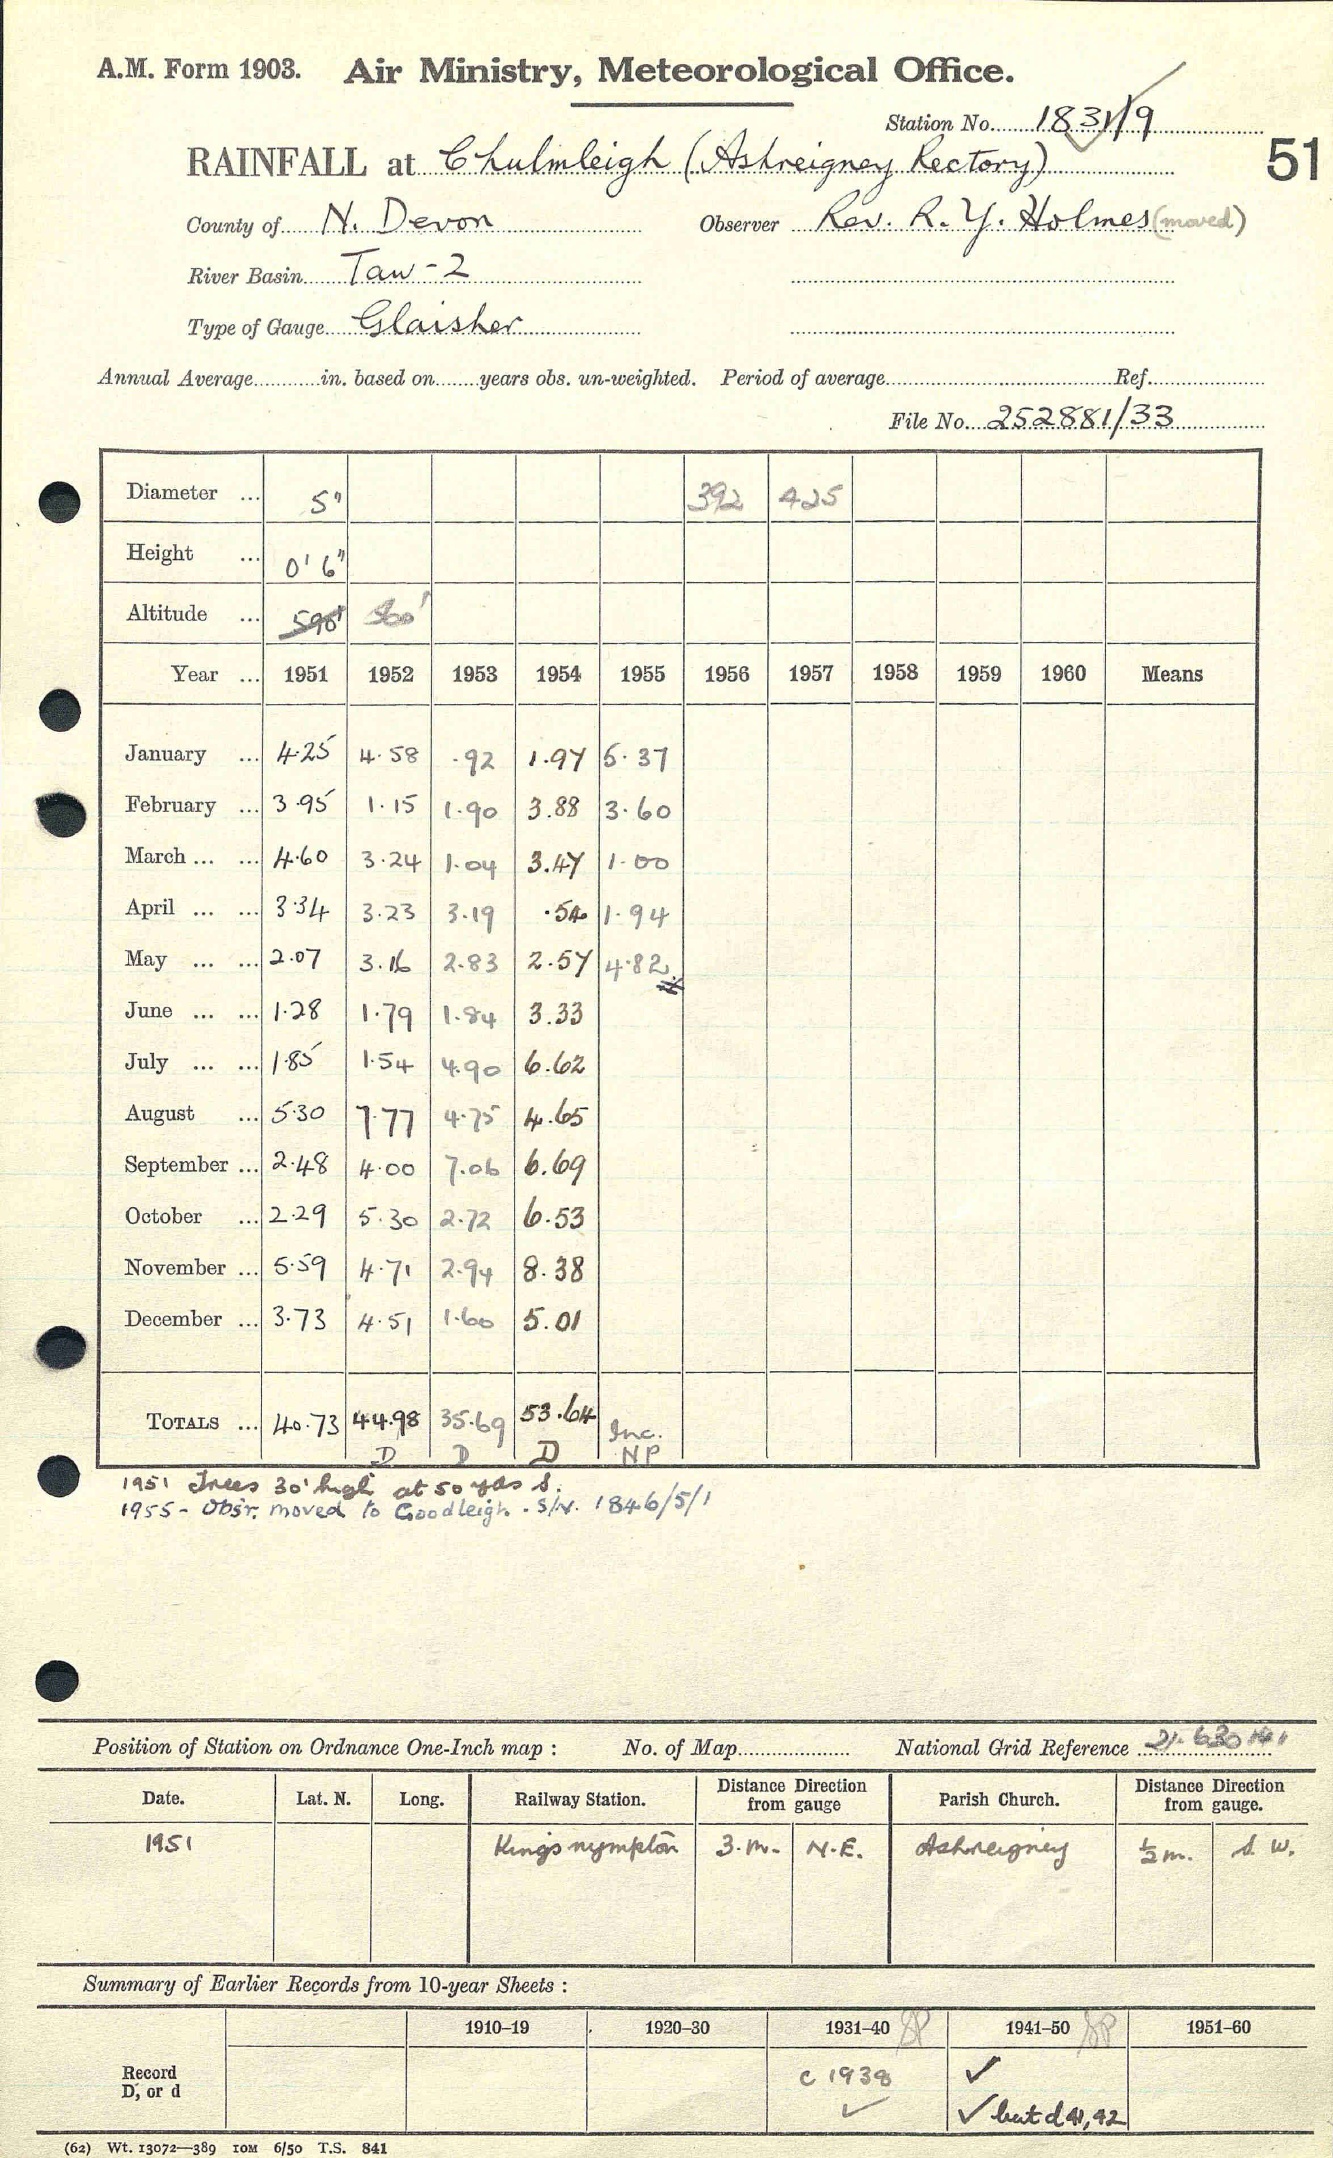 A.M. Form 1903. Air Ministry, Meteorological Office.
Station No. 1831/9
51
RAINFALL at Chulmleigh (Ashreigney Rectory)
County of N. Devon Observer Rev. R. Y. Holmes (moved)
River Basin Taw-2
Type of Gauge Glaisher
Annual Average in. based on years obs. un-weighted. Period of average Ref.
File No. 252881/33
Diameter ... 5" 392 425
Height ... 0' 6"
Altitude ... 590' 560'
Year ... 1951 1952 1953 1954 1955 1956 1957 1958 1959 1960 Means
January ... 4.25 4.58 .92 1.97 5.37
February ... 3.95 1.15 1.90 3.88 3.60
March ... ... 4.60 3.24 1.04 3.47 1.00
April ... ... 3.34 3.23 3.19 .54 1.94
May ... ... 2.07 3.16 2.83 2.57 4.82
June ... ... 1.28 1.79 1.84 3.33
July ... ... 1.85 1.54 4.90 6.62
August ... 5.30 7.77 4.75 4.65
September ... 2.48 4.00 7.06 6.69
October ... 2.29 5.30 2.72 6.53
November ... 5.59 4.71 2.94 8.38
December ... 3.73 4.51 1.60 5.01
TOTALS ... 40.73 44.98 35.69 53.64 Inc.
D D D NP
1951 Trees 30' high at 50 yds S.
1955 - Obsr. moved to Goodleigh. S/N. 1846/5/1
Position of Station on Ordnance One-Inch map : No. of Map National Grid Reference 21. 630141
Date. Lat. N. Long. Railway Station. Distance from gauge Direction Parish Church. Distance from gauge. Direction
1951 Kings nympton 3.m. N.E. Ashreigney ½ m. S.W.
Summary of Earlier Records from 10-year Sheets :
1910-19 1920-30 1931-40 1941-50 1951-60
Record c 1938 ✓
D, or d ✓ ✓ but d 41, 42
(62) Wt. 13072—389 10M 6/50 T.S. 841